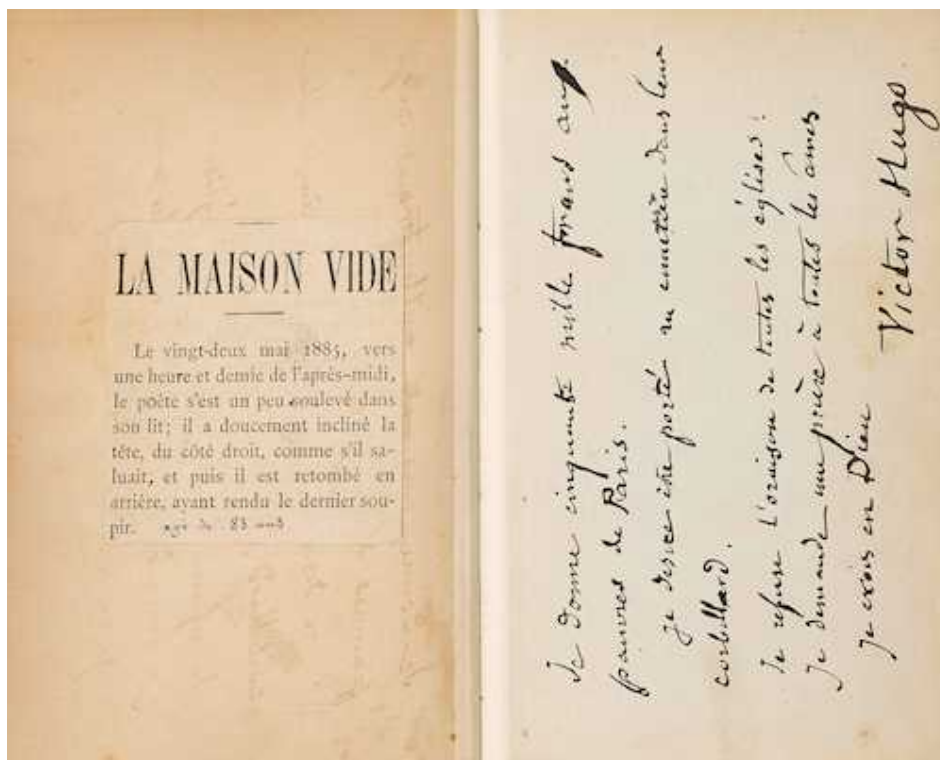 LA MAISON VIDE
Le vingt-deux mai 1885, vers
une heure et demie de l'après-midi,
le poète s'est un peu soulevé dans
son lit; il a doucement incliné la
tête, du côté droit, comme s'il sa-
luait, et puis il est retombé en
arrière, ayant rendu le dernier sou-
pir. agé de 83 ans
Je donne cinquante mille francs aux
pauvres de Paris.
Je desire être porté au cimetière dans leur
corbillard.
Je refuse l'oraison de toutes les églises;
Je demande une prière à toutes les âmes
Je crois en Dieu
Victor Hugo.